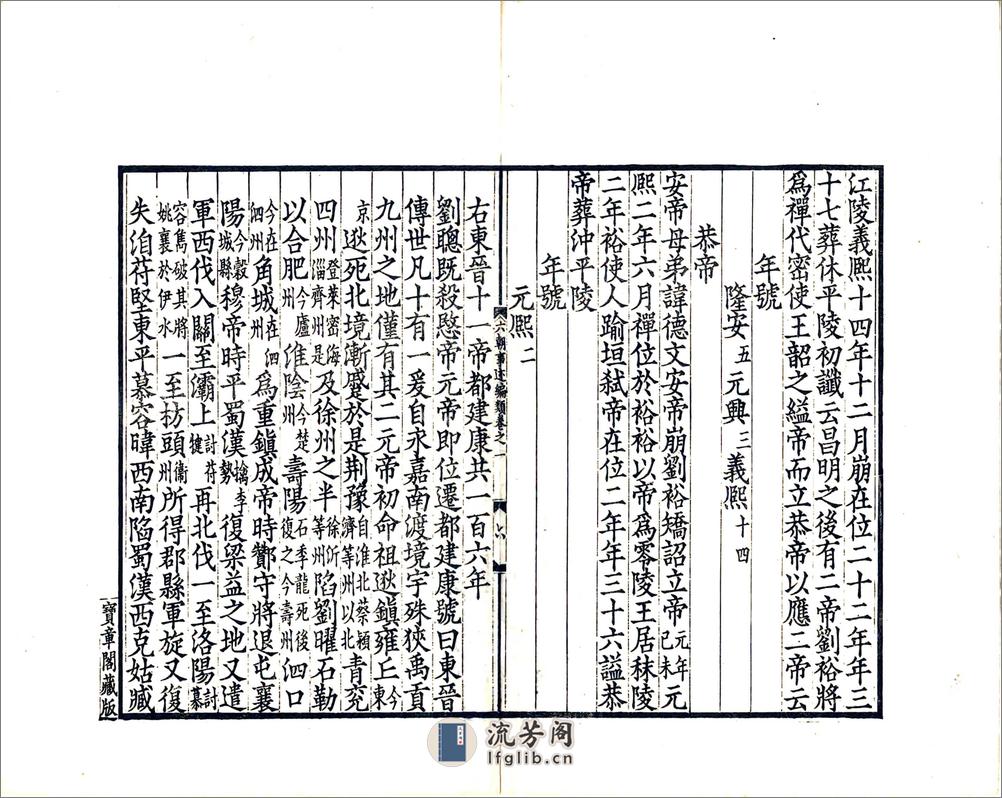 江陵義熙十四年十二月崩在位二十二年年三
十七葬休平陵初讖云昌明之後有二帝劉裕將
爲禪代密使王韶之縊帝而立恭帝以應二帝云
年號
隆安五元興三義熙十四
恭帝
安帝母弟諱德文安帝崩劉裕矯詔立帝元年己未元
熙二年六月禪位於裕裕以帝爲零陵王居秣陵
二年裕使人踰垣弑帝在位二年年三十六謚恭
帝葬沖平陵
年號
元熙二
六朝事迹編類卷之一
右東晉十一帝都建康共一百六年
劉聰既殺愍帝元帝即位遷都建康號曰東晉
傳世凡十有一爰自永嘉南渡境宇殊狹禹貢
九州之地僅有其二元帝初命祖逖鎮雍丘今東
京逖死北境漸蹙於是荆豫自淮北蔡潁濟等州以北青兖
四州登萊密淄齊海是及徐州之半徐沂等州陷劉曜石勒
以合肥今廬州淮陰今楚州壽陽石季龍死後復之今壽州泗口
今在泗州角城在泗州爲重鎮成帝時鄼守將退屯襄
陽今穀城縣穆帝時平蜀漢擒李勢復梁益之地又遣
軍西伐入關至灞上討苻健再北伐一至洛陽討慕
容雋破其將姚襄於伊水一至枋頭衞州所得郡縣軍旋又復
失洎苻堅東平慕容暐西南陷蜀漢西克姑臧
寶章閣藏版
流芳阁
lfglib.cn